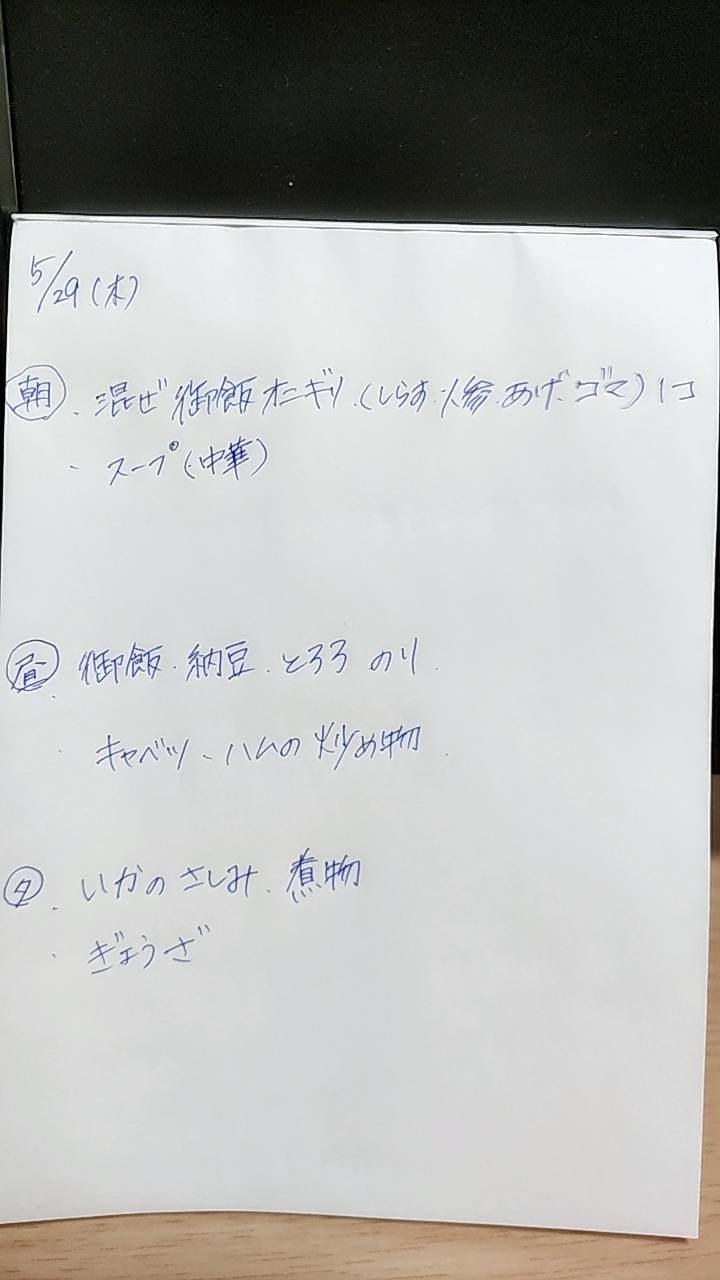 5/29(木)
朝 ・混ぜ御飯オニギリ.(しらす.人参.あげ.ゴマ)1コ
・スープ(中華)
昼 ・御飯.納豆.とろろ のり.
・キャベツ、ハムの炒め物.
夕 ・いかのさしみ.煮物
・ぎょうざ